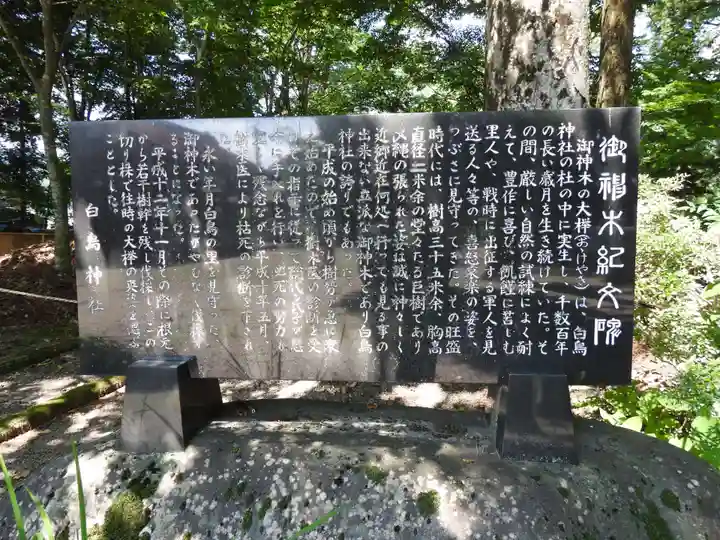 御神木紀文碑
御神木の大欅（おけやき）は、白鳥
神社の杜の中に実生し、千数百年
の長い歳月を生き続けていた。そ
の間、厳しい自然の試練によく耐
えて、豊作に喜び、飢饉に苦しむ
里人や、戦時に出征する軍人を見
送る人々等の、喜怒哀楽の姿を、
つぶさに見守ってきた。その旺盛
時代には、樹高三十五米余、胸高
直径三米余の堂々たる巨樹であり
〆縄の張られた姿は誠に神々しく
近郷近在何処へ行っても見る事の
出来ない立派な御神木であり白鳥
神社の誇りでもあった。
平成の始め頃から樹勢が急に衰
え始めたので、樹木医の診断を受
け、その指示に従って総代氏子が懸
命に手入れを行い、
残念ながら平成十年五月、
樹木医により枯死の診断を下され
た。
永い年月白鳥の里を見守った、
御神木であったがやむなく伐採す
ることになった。
平成十二年十一月その際に根元
から若干樹幹を残し伐採し、この
切り株で往時の大欅の英姿を偲ぶ
こととした。
白鳥神社